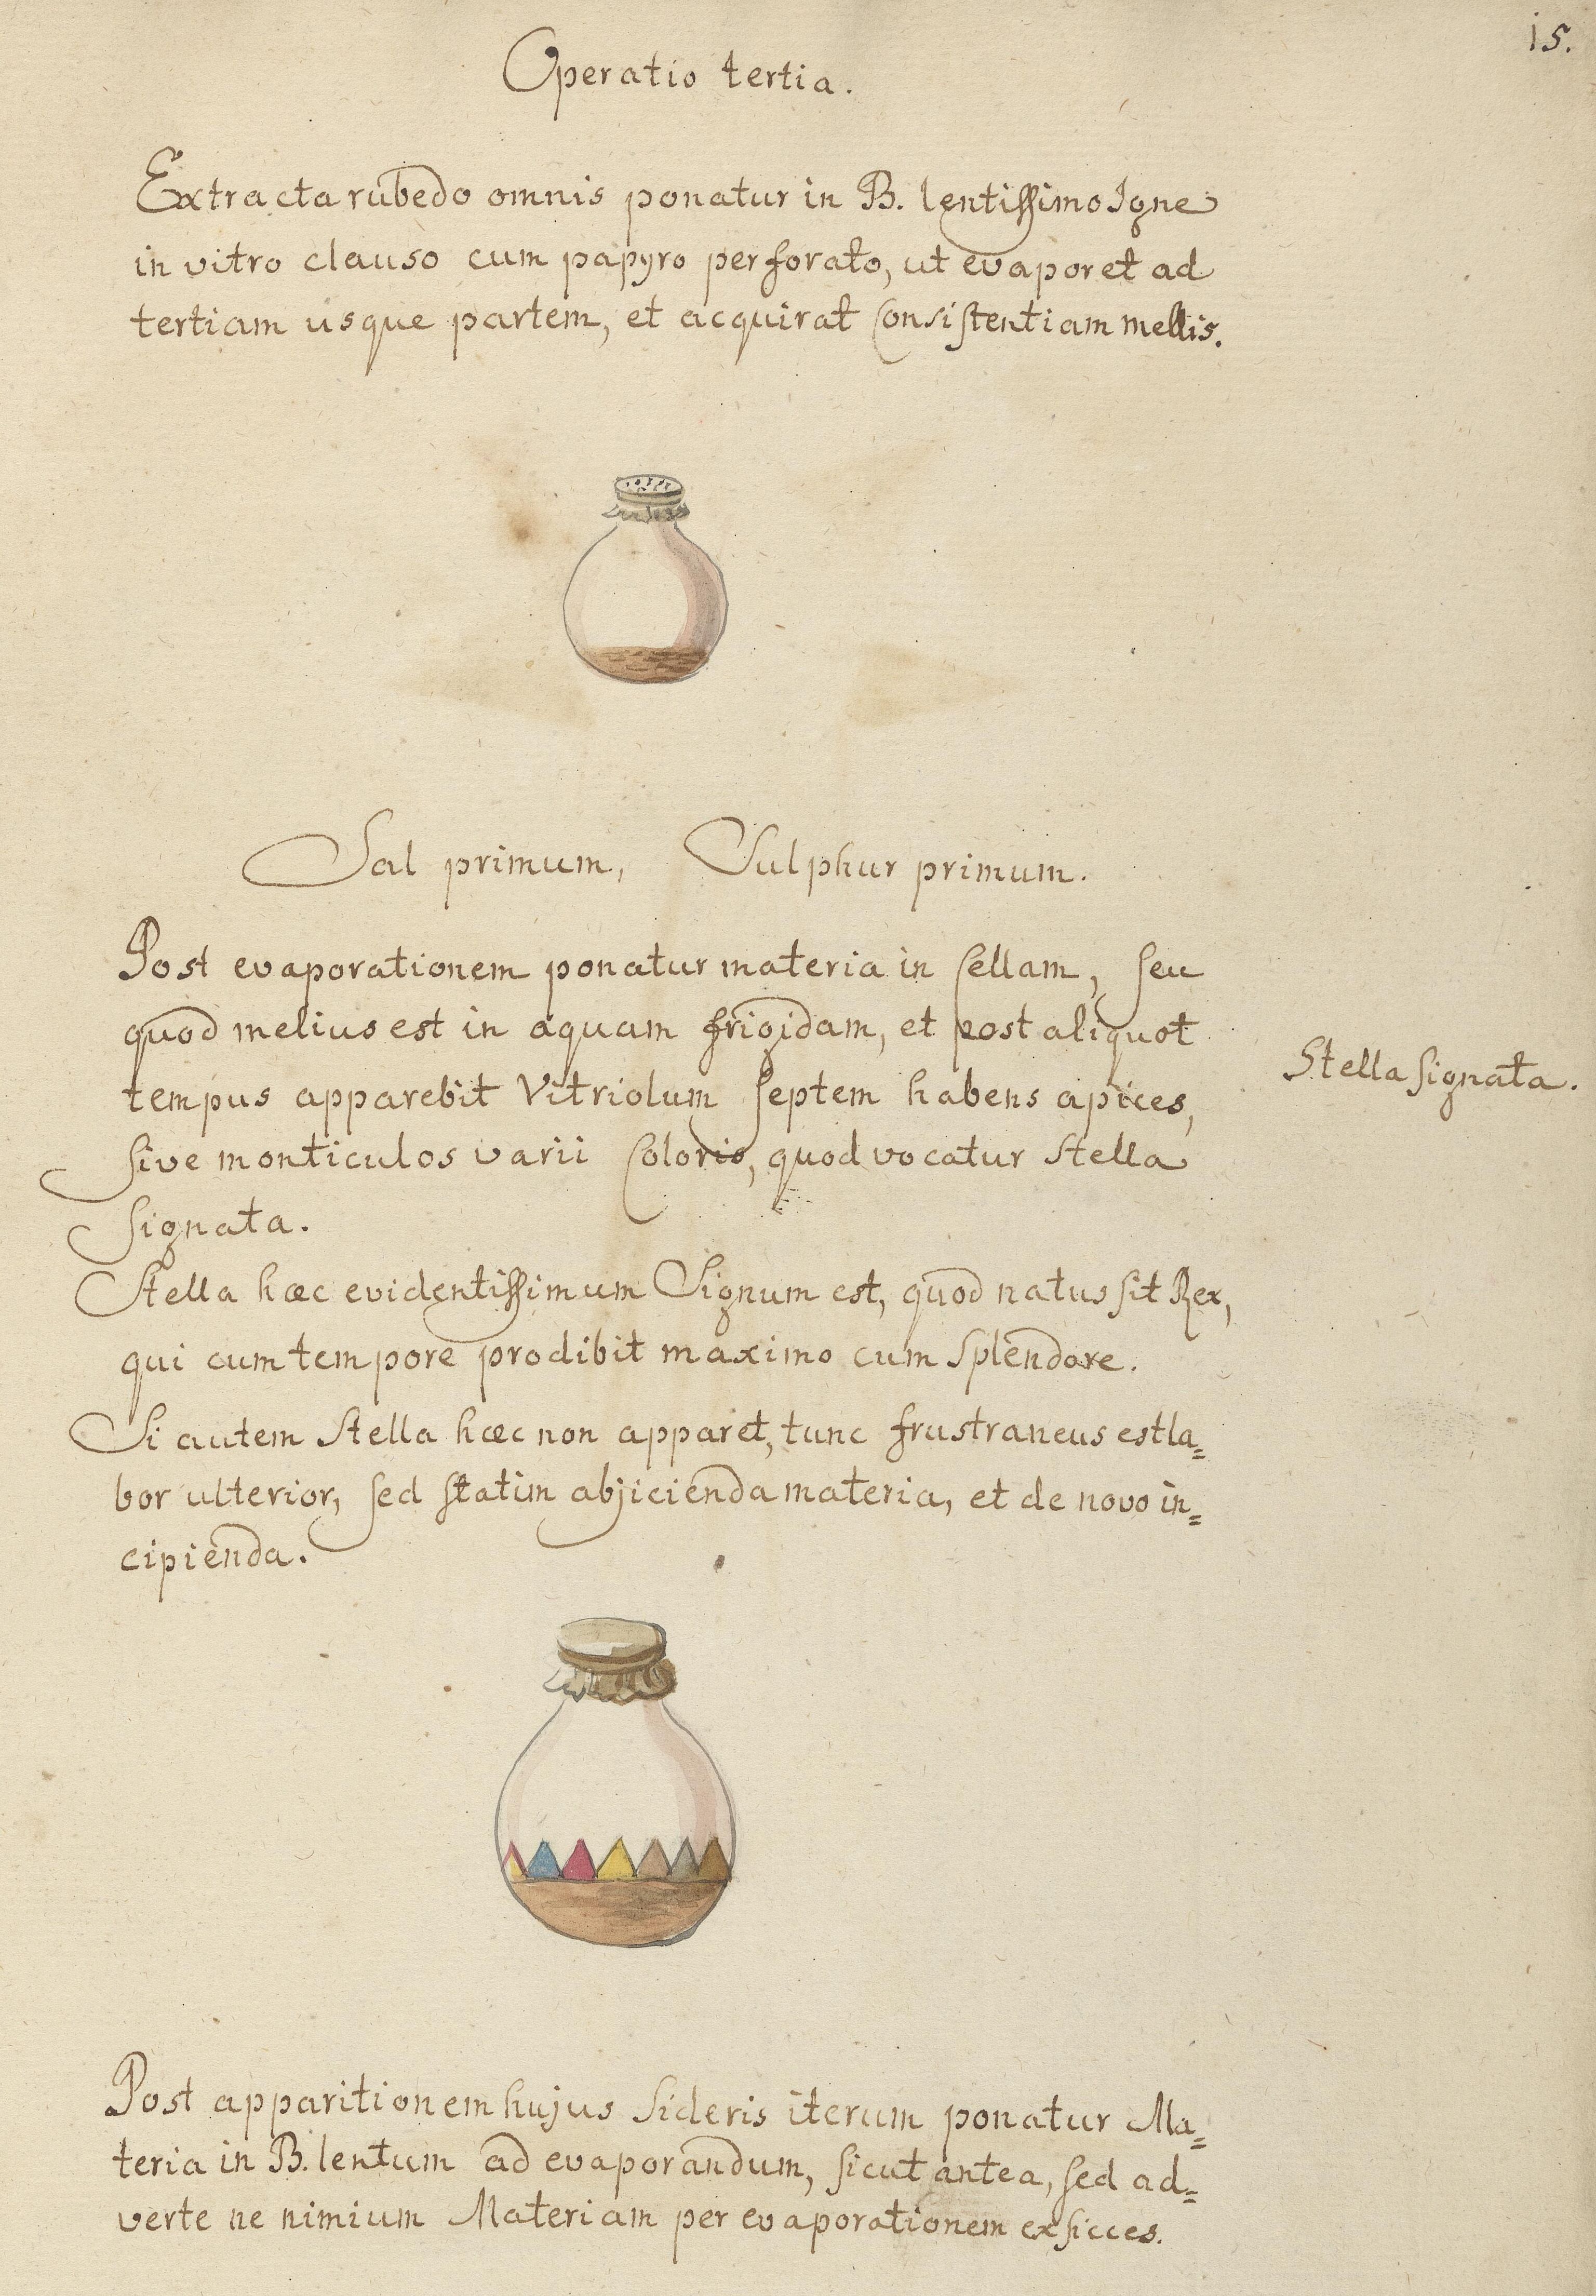 15.
Operatio tertia.
Extracta rubedo omnis ponatur in B. lentissimo Igne
in vitro clauso cum papyro perforato, ut evaporet ad
tertiam usque partem, et acquirat Consistentiam mellis.
Sal primum, Sulphur primum.
Post evaporationem ponatur materia in Cellam, seu
quod melius est in aquam frigidam, et post aliquot
tempus apparebit Vitriolum septem habens apices,
sive monticulos varii Coloris, quod vocatur Stella
Signata.
Stella Signata.
Stella haec evidentissimum Signum est, quod natus sit Rex,
qui cum tempore prodibit maximo cum Splendore.
Si autem Stella haec non apparet, tunc frustraneus est la=
bor ulterior, sed statim abjicienda materia, et de novo in=
cipienda.
Post apparitionem hujus Sideris iterum ponatur Ma=
teria in B. lentum ad evaporandum, sicut antea, sed ad=
verte ne nimium Materiam per evaporationem exsicces.